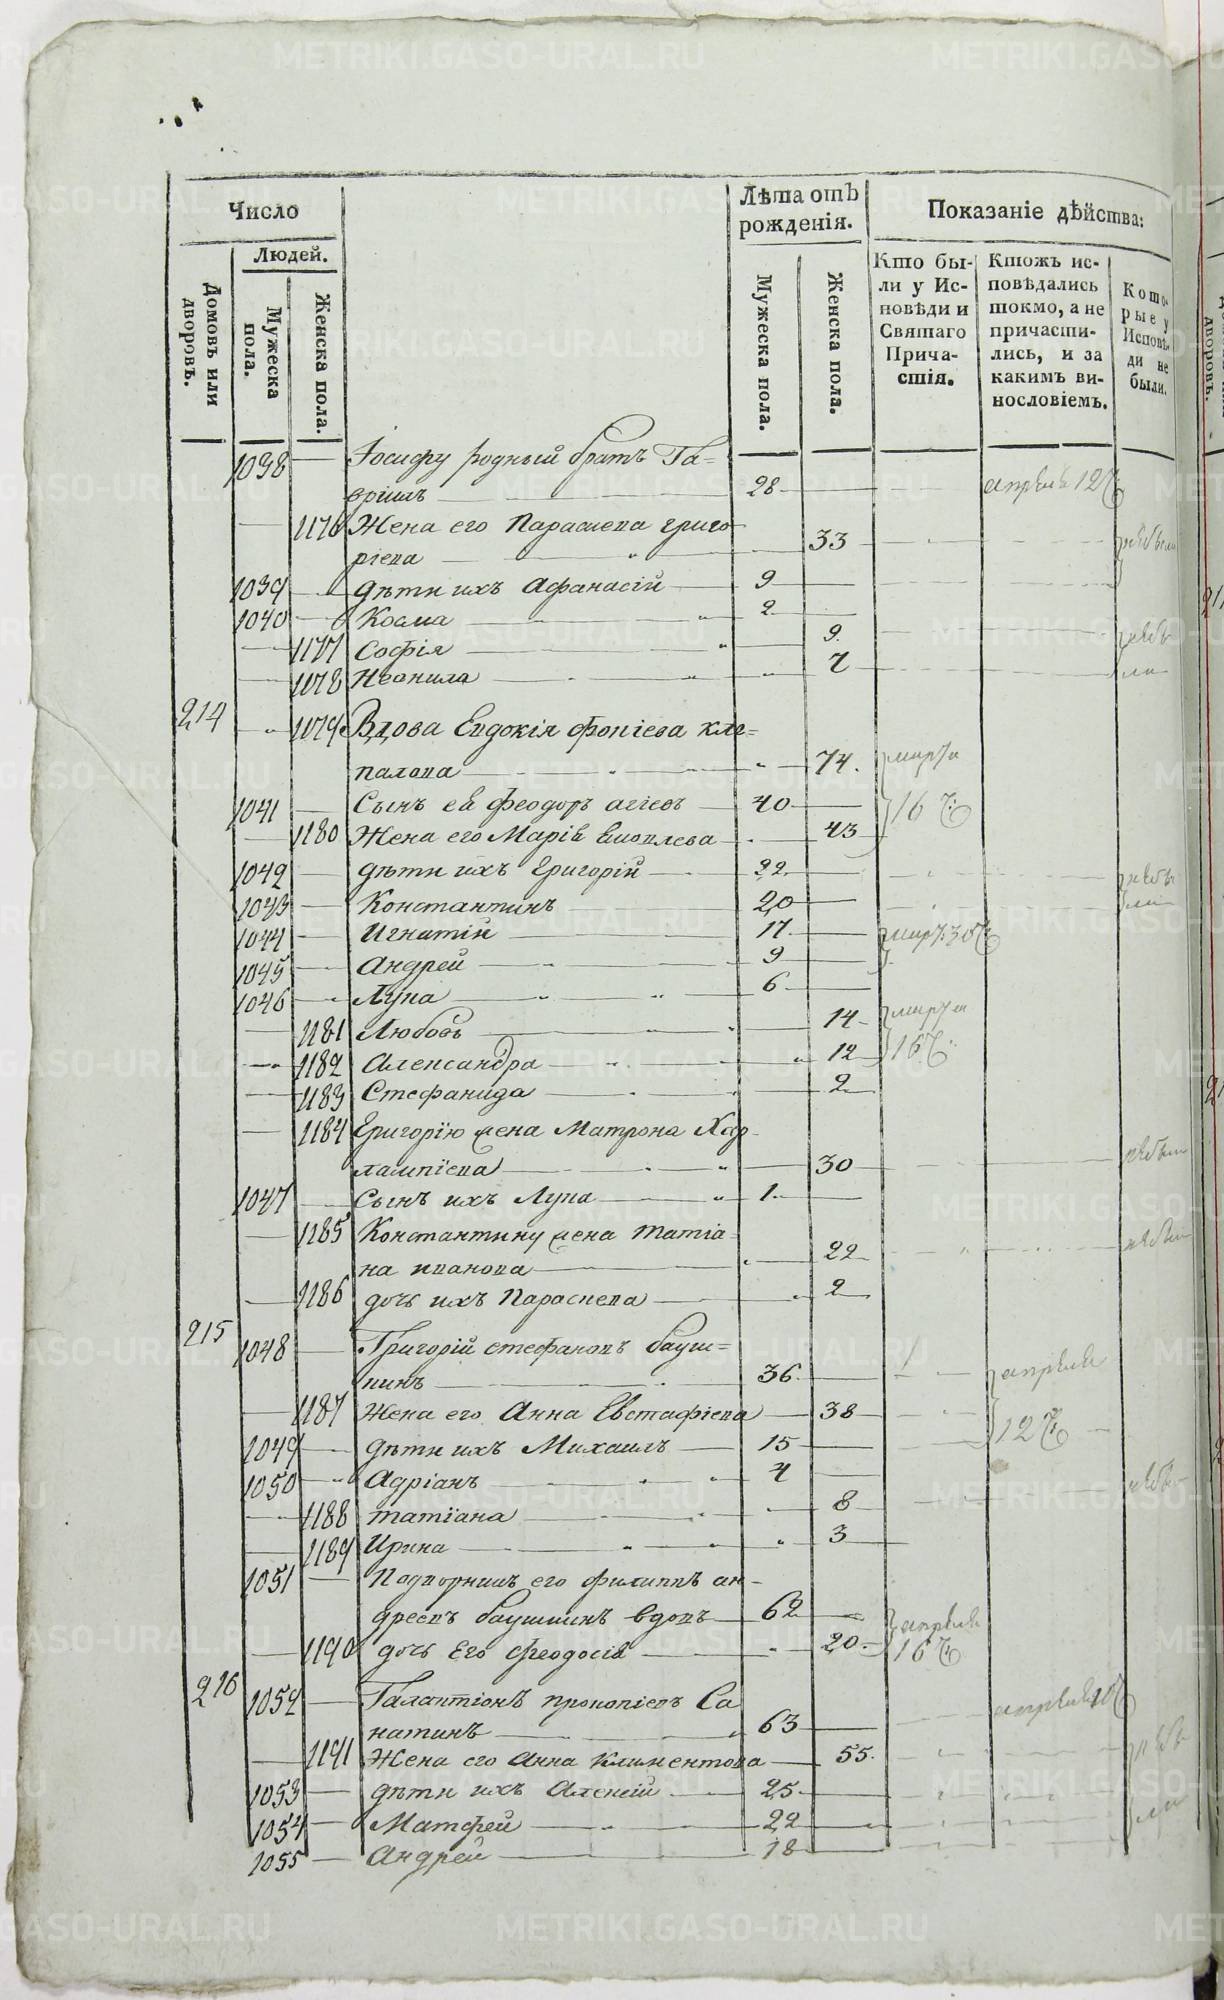 Число
Лѣта отъ рожденія.
Показаніе дѣйства:
Людей.
Домовъ или дворовъ.
Мужеска пола.
Женска пола.
Мужеска пола.
Женска пола.
Кто были у Исповѣди и Святаго Причастія.
Ктожъ исповѣдались токмо, а не причастились, и за какимъ винословіемъ.
Которые у Исповѣди не были.
1038 Іосифу родный братъ Га=
вріилъ 28 апрѣля 12
1176 Жена его Параскева григо
ріева 33
1039 дѣти ихъ Афанасій 9
1040 Косма 2
1177 Софія 9
1178 Неонила 7
214 1179 Вдова Евдокія фокіева кле=
палова 74 марта
1041 Сынъ ея феодоръ агіевъ 40 16
1180 Жена его Марія 43
1042 дѣти ихъ Григорій 22
1043 Константинъ 20
1044 Игнатій 17 мар: 30
1045 Андрей 9
1046 Лупа 6
1181 Любовь 14 марта
1182 Александра 12 16
1183 Стефанида 2
1184 Григорію жена Матрона Хар
лампіева 30
1047 Сынъ ихъ Лупа 1
1185 Константину жена татіа
на иванова 22
1186 дочь ихъ Параскева 2
215 1048 Григорій стефановъ бауш=
кинъ 36 апрѣля
1187 Жена его Анна Евстафіева 38 12
1049 дѣти ихъ Михаилъ 15
1050 Адріанъ 4
1188 татіана 8
1189 Ирина 3
1051 Подворникъ его филиппъ ан
дреевъ баушкинъ вдовъ 62 апрѣля
1190 дочь Его феодосія 20 16
216 1052 Галактіонъ прокопіевъ Са
натинъ 63 апрѣля
1191 Жена его Анна климентова 55
1053 дѣти ихъ Алексій 25
1054 Матфей 22
1055 Андрей 18
METRIKI.GASO-URAL.RU